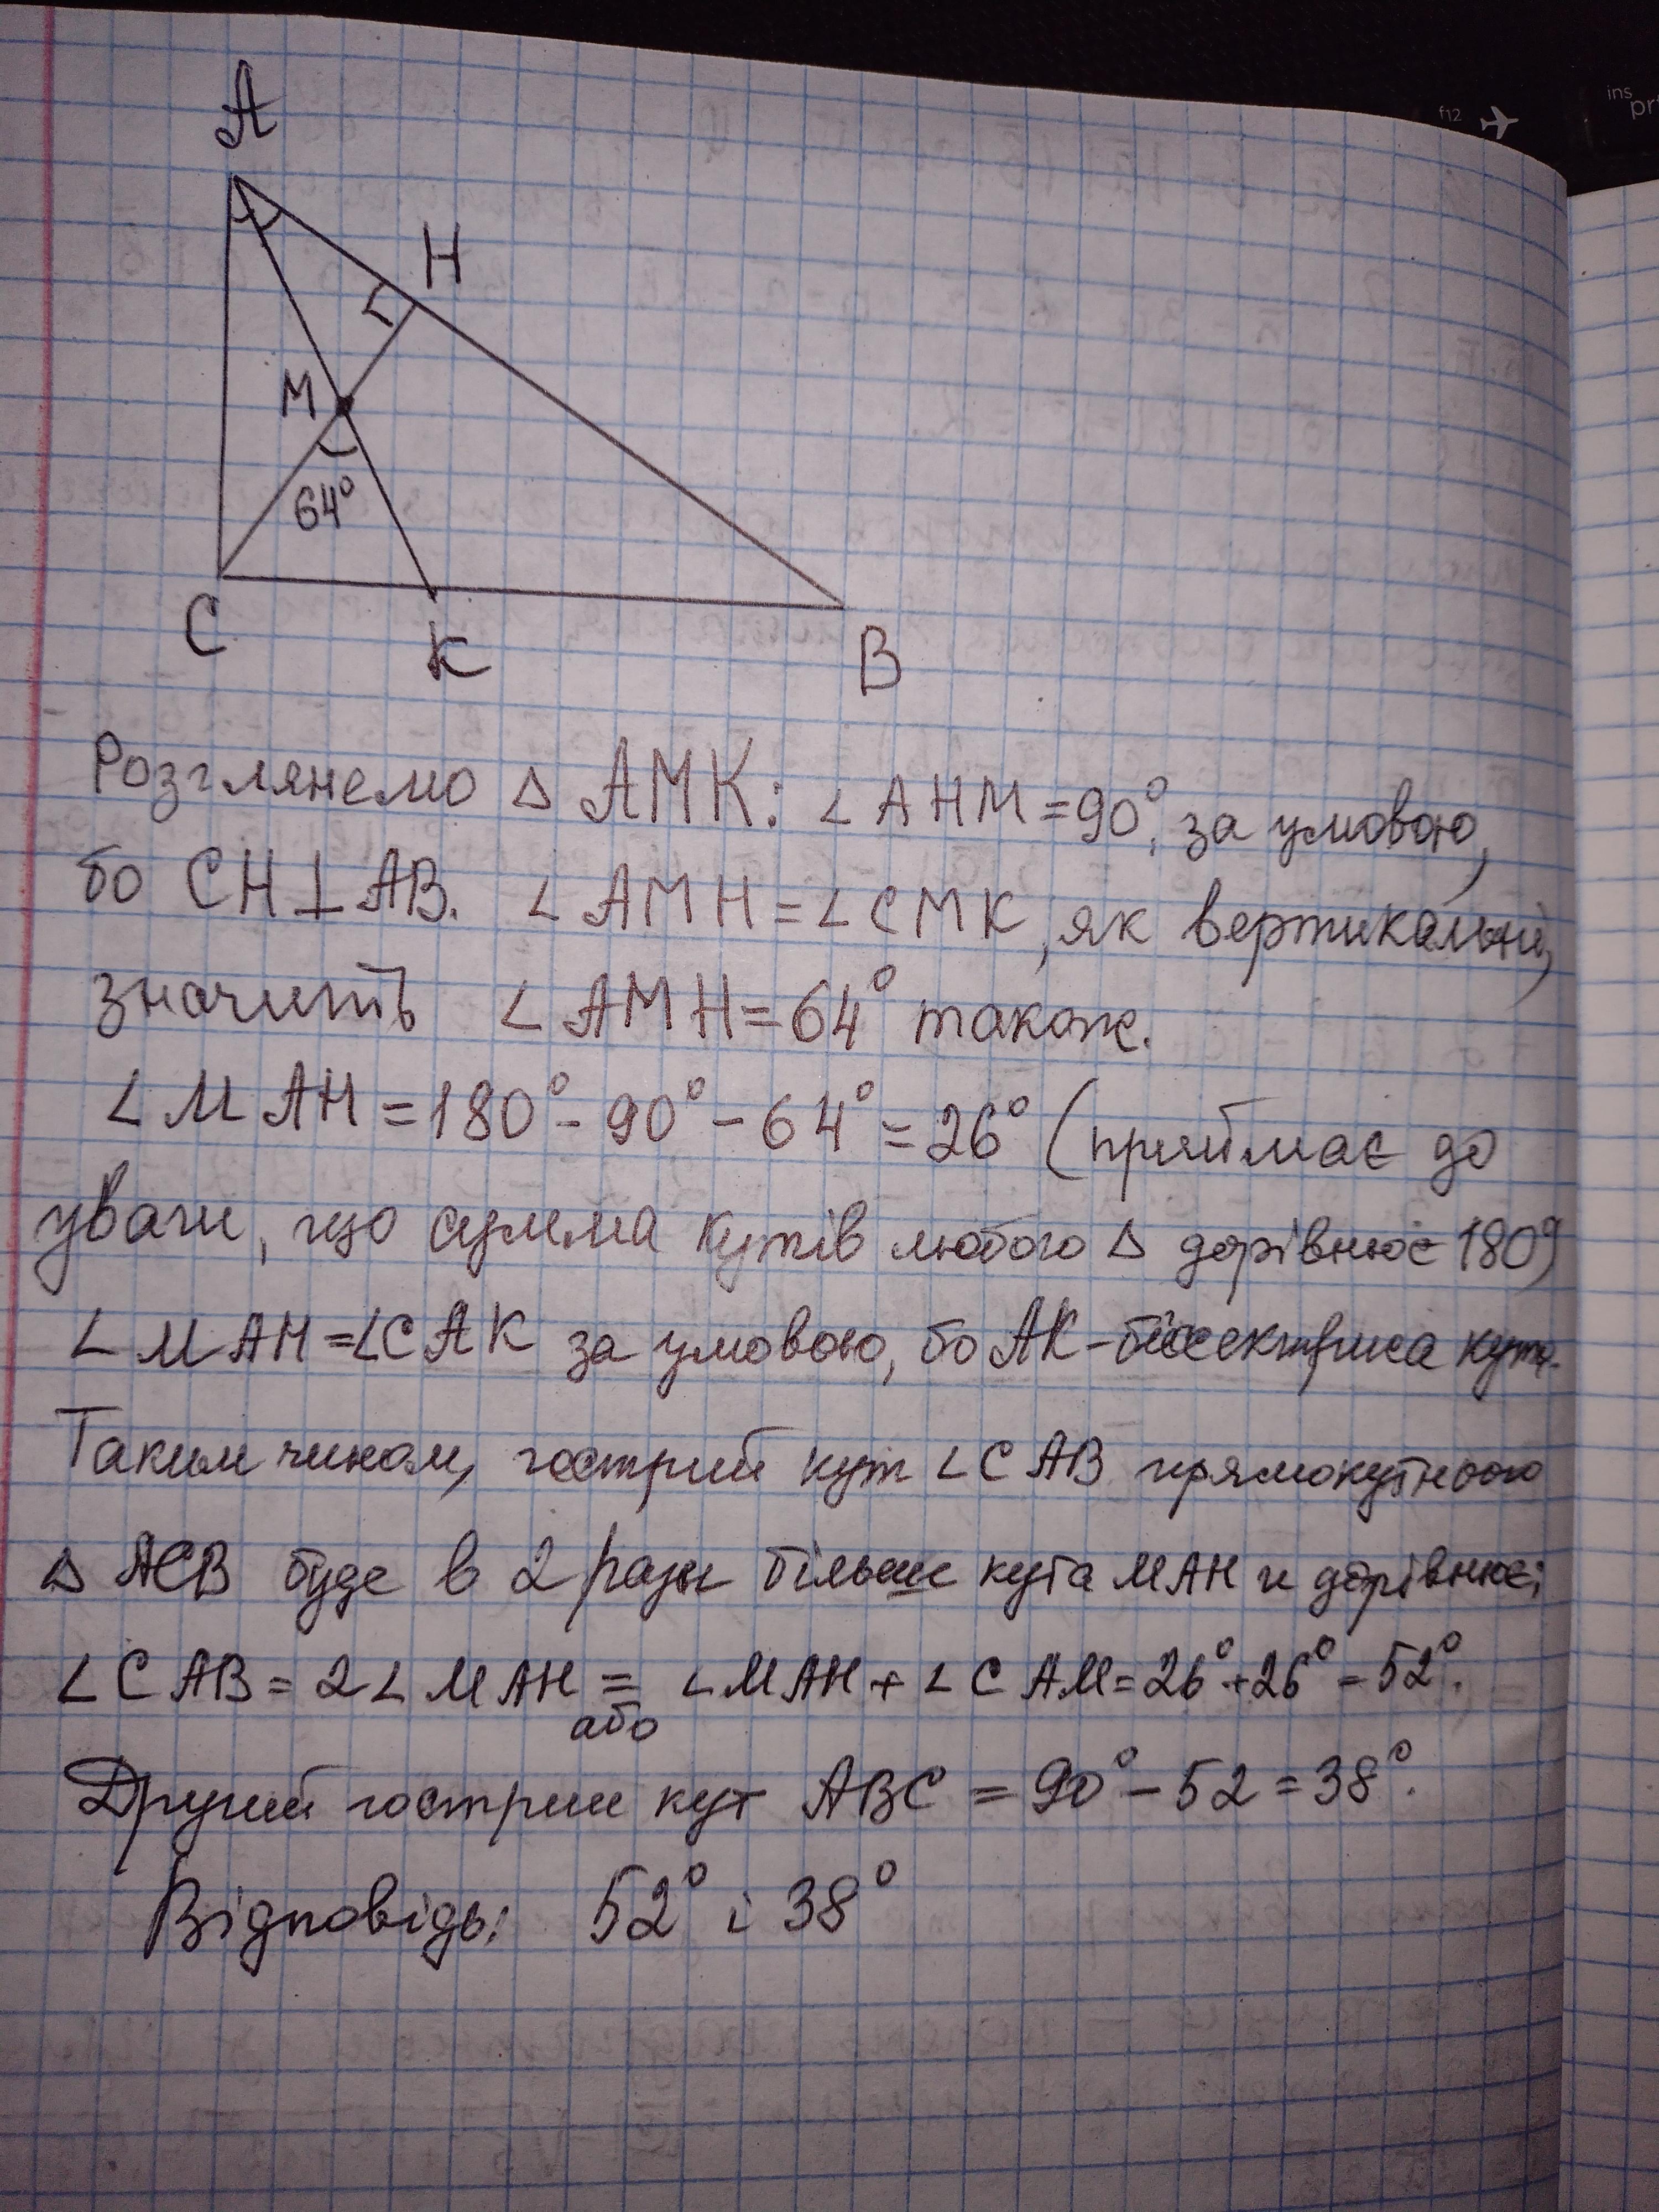 f12
ins
pr
A
H
M
64°
C
K
B
Розглянемо △ AMK: ∠AHM=90°, за умовою,
бо CH⊥AB. ∠AMH=∠CMK, як вертикальні,
значить ∠AMH=64° також.
∠MAH=180°-90°-64°=26° (приймає до
уваги, що сумма кутів любого △ дорівнює 180°)
∠MAH=∠CAK за умовою, бо AK-біссектриса кута.
Таким чином, гострий кут ∠CAB прямокутного
△ ACB буде в 2 разы більше кута MAH и дорівнює:
∠CAB=2∠MAH = ∠MAH+∠CAM=26°+26°=52°.
або
Другий гострий кут ABC = 90°-52=38°.
Відповідь: 52° і 38°